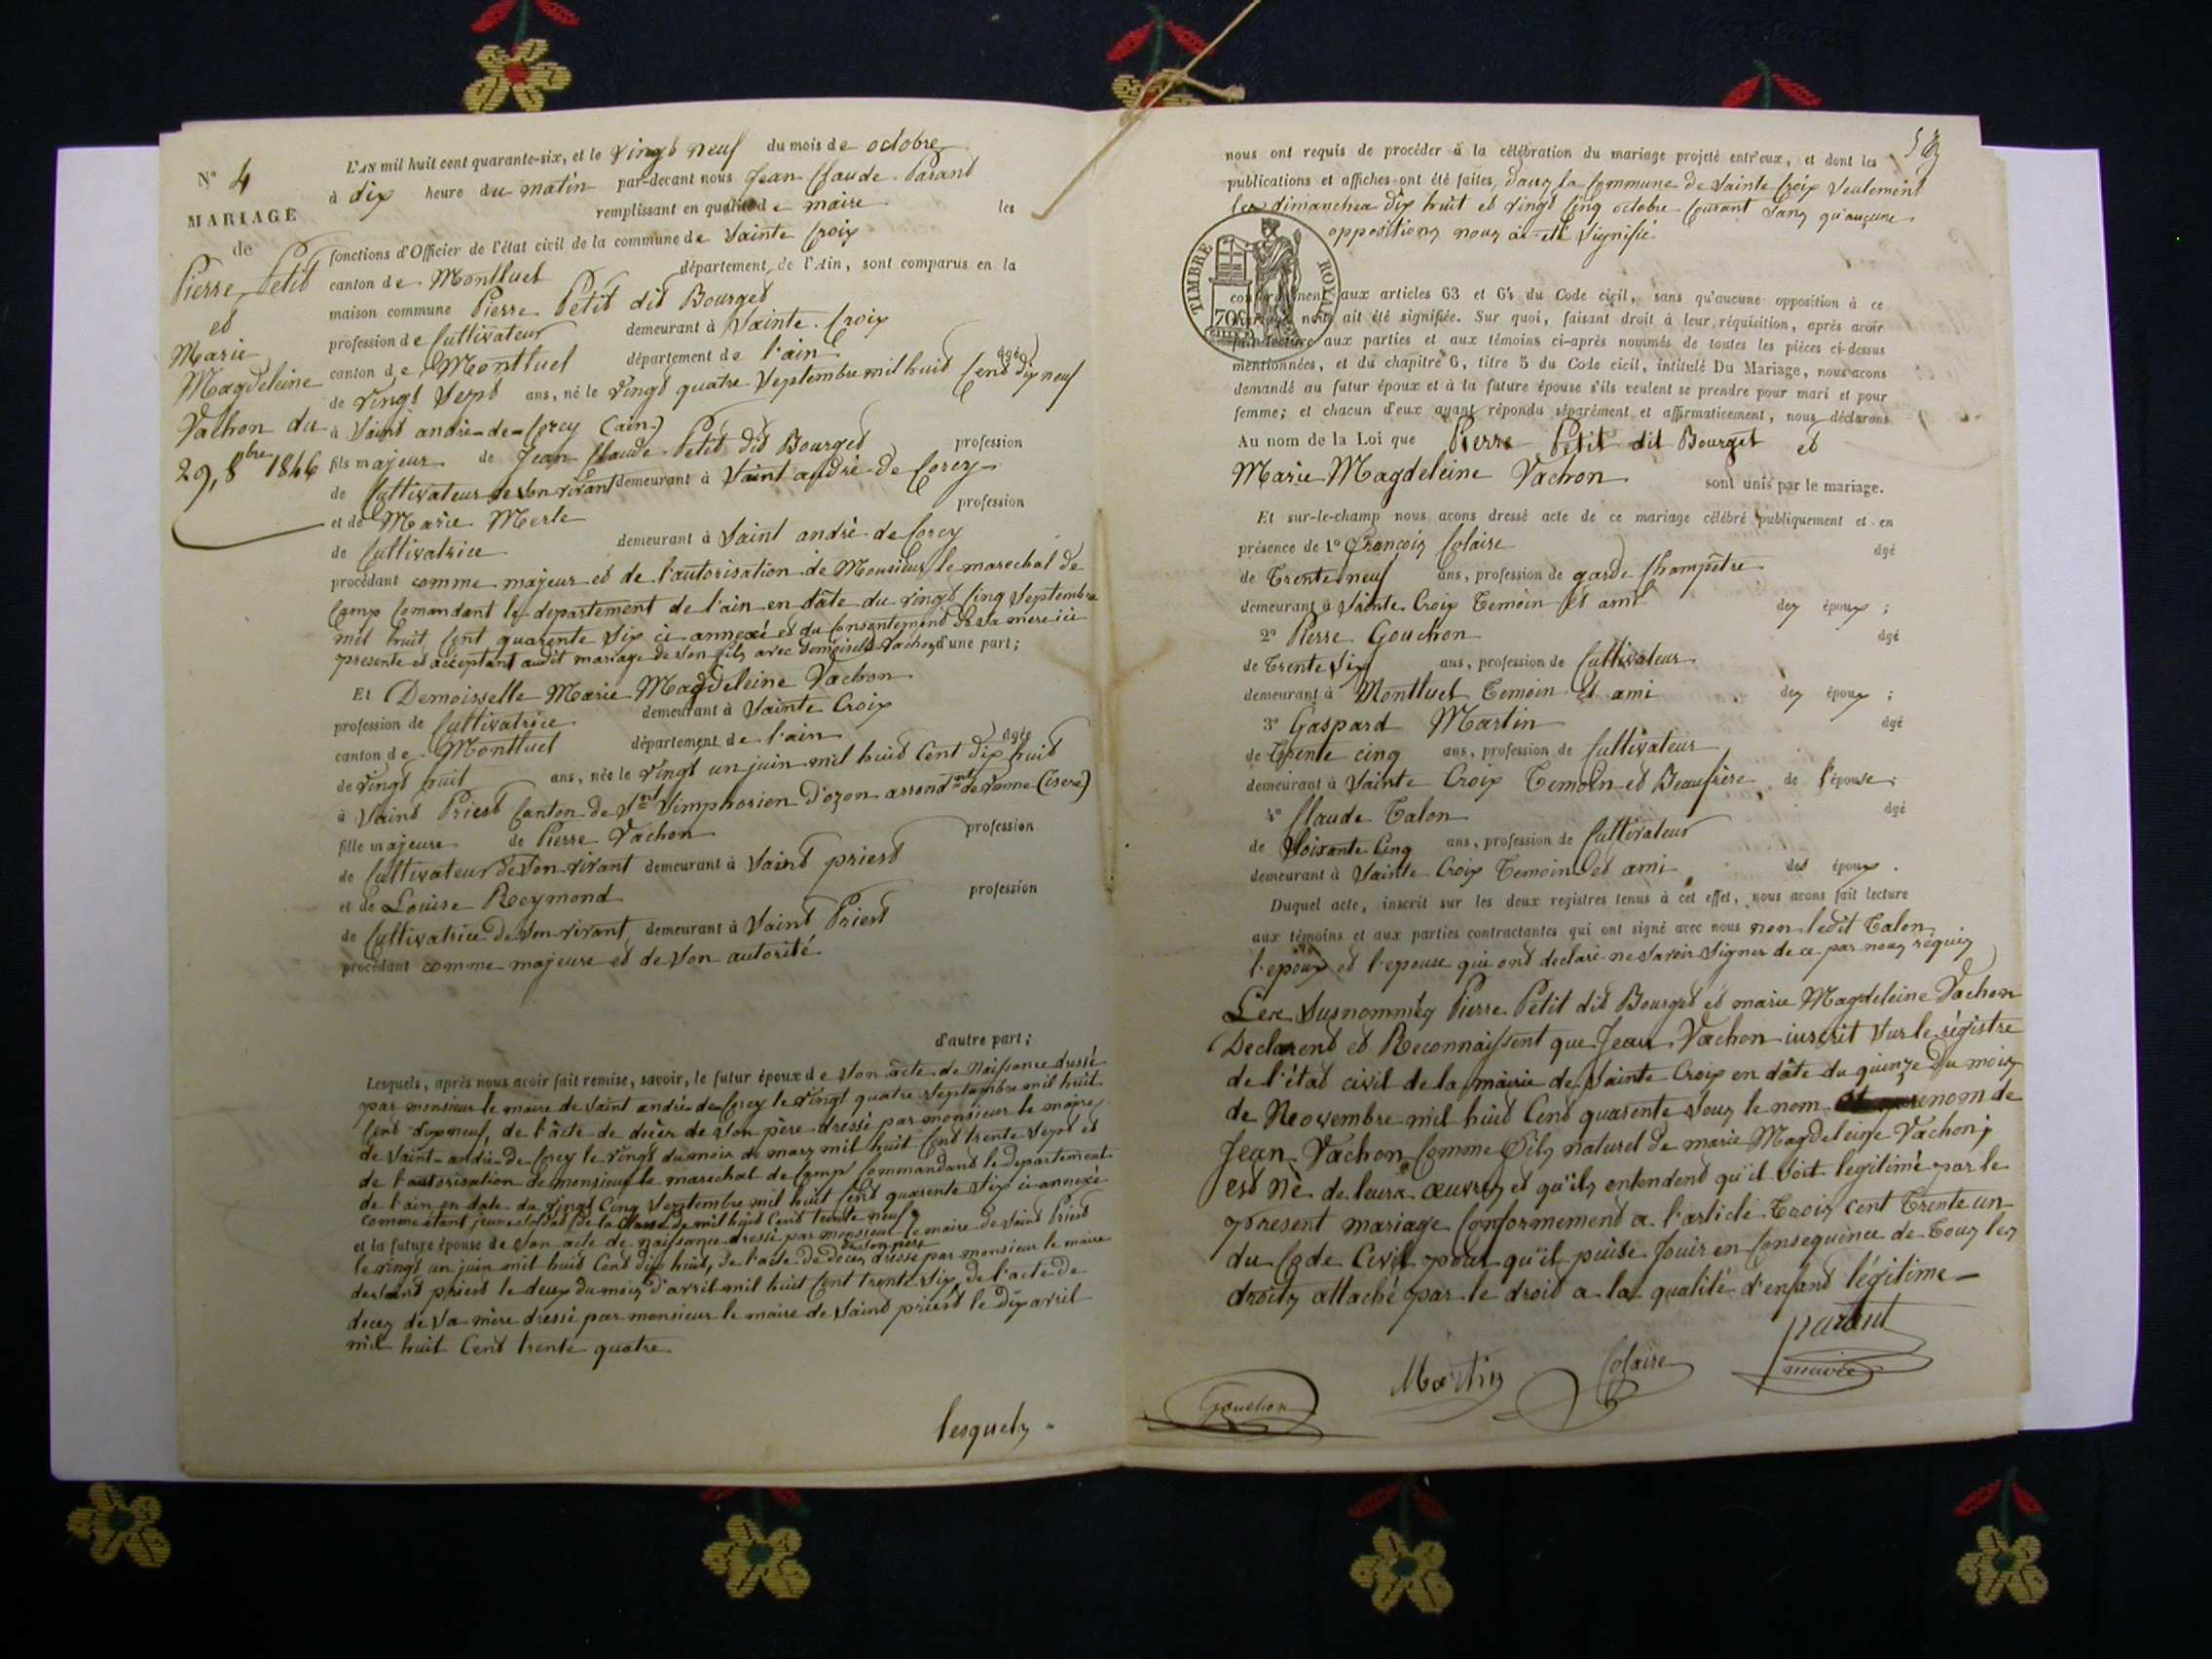 N° 4
MARIAGE
de
Pierre Petit
et
Marie
Magdeleine
Vachon du
29, 8bre 1846
L'AN mil huit cent quarante-six, et le vingt neuf du mois de octobre
à dix heure du matin par-devant nous Jean Claude Parant
remplissant en qualité de maire les
fonctions d'Officier de l'état civil de la commune de Sainte Croix
canton de Montluel département de l'Ain, sont comparus en la
maison commune Pierre Petit dit Bourget
profession de Cultivateur demeurant à Sainte Croix
canton de Montluel département de l'ain âgé
de vingt sept ans, né le vingt quatre Septembre mil huit Cent dix neuf
à Saint andré-de-Corcy (ain)
fils majeur de Jean Claude Petit dit Bourget profession
de Cultivateur de son vivant demeurant à Saint andré de Corcy
et de Marie Merle profession
de Cultivatrice demeurant à Saint andré de Corcy
procédant comme majeur et de l'autorisation de Monsieur le marechal de
Camp Comandant le departement de l'ain en date du vingt Cinq Septembre
mil huit Cent quarente Six ci annexé et du Consentement de sa mere ici
presente et acceptant audit mariage de son fils avec demoiselle Vachon d'une part;
Et Demoisselle Marie Magdeleine Vachon
profession de Cultivatrice demeurant à Sainte Croix
canton de Montluel département de l'ain âgée
de vingt huit ans, née le vingt un juin mil huit Cent dix huit
à Saint Priest Canton de St Simphorien d'ozon arrondt de vienne (Isere)
fille majeure de Pierre Vachon profession
de Cultivateur de son vivant demeurant à Saint priest
et de Louise Reymond profession
de Cultivatrice de son vivant demeurant à Saint Priest
procédant comme majeure et de son autorité
d'autre part;
Lesquels, après nous avoir fait remise, savoir, le futur époux de son acte de Naissance dressé
par monsieur le maire de Saint andré-de-Corcy le vingt quatre Septembre mil huit
Cent dix neuf, de l'acte de décès de son père dressé par monsieur le maire
de Saint-andré-de Corcy le vingt du mois de mars mil huit Cent trente Sept et
de l'autorisation de monsieur le marechal de Camp Commandant le departement
de l'ain en date du vingt Cinq Septembre mil huit Cent quarente Six ci annexé
comme étant jeune soldat de la classe de mil huit Cent trente neuf
et la future épouse de son acte de naissance dressé par monsieur le maire de Saint Priest
le vingt un juin mil huit Cent dix huit, de l'acte de deces de son père dressé par monsieur le maire
de Saint priest le deux du mois d'avril mil huit Cent trente Six, de l'acte de
deces de sa mère dressé par monsieur le maire de Saint priest le dix avril
mil huit Cent trente quatre
lesquels
nous ont requis de procéder à la célébration du mariage projeté entr'eux, et dont les
publications et affiches ont été faites, dans la Commune de Sainte Croix Seulement
les dimanches dix huit et vingt Cinq octobre Courant Sans qu'aucune
oppositions nous ai été Signifié
TIMBRE ROYAL
70c
conformément aux articles 63 et 64 du Code civil, sans qu'aucune opposition à ce
mariage nous ait été signifiée. Sur quoi, faisant droit à leur réquisition, après avoir
fait lecture aux parties et aux témoins ci-après nommés de toutes les pièces ci-dessus
mentionnées, et du chapitre 6, titre 5 du Code civil, intitulé Du Mariage, nous avons
demandé au futur époux et à la future épouse s'ils veulent se prendre pour mari et pour
femme; et chacun d'eux ayant répondu séparément et affirmativement, nous déclarons
Au nom de la Loi que Pierre Petit dit Bourget et
Marie Magdeleine Vachon sont unis par le mariage.
Et sur-le-champ nous avons dressé acte de ce mariage célébré publiquement et en
présence de 1° François Colaire âgé
de Trente neuf ans, profession de garde Champêtre
demeurant à Sainte Croix Temoin et ami des époux;
2° Pierre Gouchon âgé
de Trente Six ans, profession de Cultivateur
demeurant à Montluel Temoin et ami des époux;
3° Gaspard Martin âgé
de Trente cinq ans, profession de Cultivateur
demeurant à Sainte Croix Temoin et Beaufrère de l'épouse;
4° Claude Talon âgé
de Soixante Cinq ans, profession de Cultivateur
demeurant à Sainte Croix Temoin et ami des époux.
Duquel acte, inscrit sur les deux registres tenus à cet effet, nous avons fait lecture
aux témoins et aux parties contractantes qui ont signé avec nous non ledit Talon
l'epoux et l'epouse qui ont declaré ne Savoir Signer de ce par nous réquis
Les Susnommés Pierre Petit dit Bourget et marie Magdeleine Vachon
Declarent et Reconnaissent que Jean Vachon inscrit Sur le régistre
de l'état civil de la mairie de Sainte Croix en date du quinze du mois
de Neovembre mil huit Cent quarente Sous le nom et prenom de
Jean Vachon Comme Fils naturel de marie Magdeleine Vachon,
est né de leurs œuvres et qu'ils entendent qu'il soit legitimé par le
present mariage Conformement a l'article Trois Cent Trente un
du Code Civil pour qu'il puisse Jouir en Consequence de Tous les
droits attaché par le droit a la qualité d'enfant légitime
parant
maire
Colaire
Martin
Gouchon